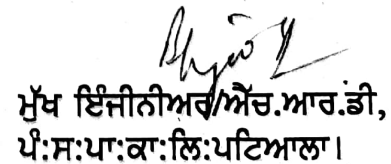 ਮੁੱਖ ਇੰਜੀਨੀਅਰ/ਐੱਚ.ਆਰ.ਡੀ,
ਪੰ:ਸ:ਪਾ:ਕਾ:ਲਿ:ਪਟਿਆਲਾ।